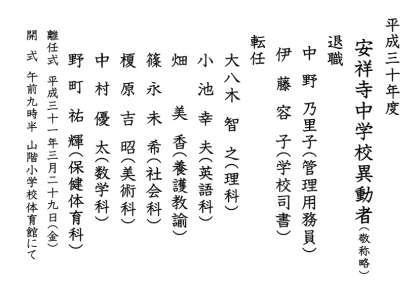 平成三十年度
安祥寺中学校異動者(敬称略)
退職
中野乃里子(管理用務員)
伊藤容子(学校司書)
転任
大八木智之(理科)
小池幸夫(英語科)
畑美香(養護教諭)
篠永未希(社会科)
榎原吉昭(美術科)
中村優太(数学科)
野町祐輝(保健体育科)
離任式 平成三十一年三月二十九日(金)
開式 午前九時半 山階小学校体育館にて